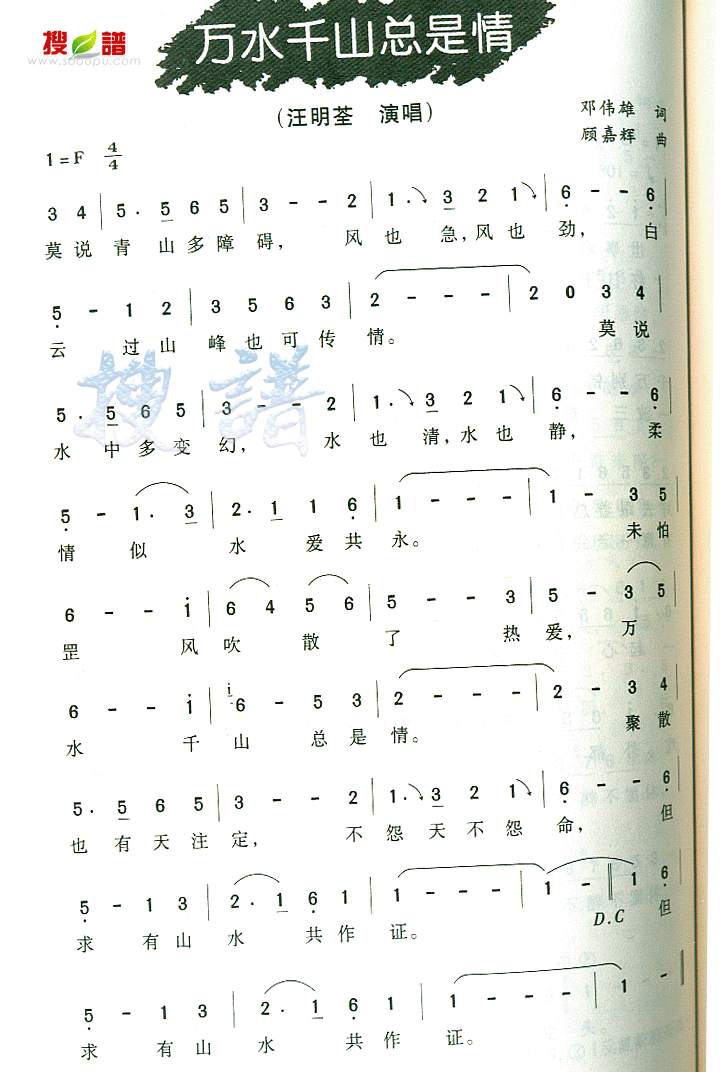 搜譜
www.sooopu.com
万水千山总是情
(汪明荃 演唱)
邓伟雄 词
顾嘉辉 曲
1=F 4/4
3 4 | 5· 5 6 5 | 3 - - 2 | 1· 3 2 1 | 6 - - 6
莫说青山多障碍，风也急,风也劲，白
5 - 1 2 | 3 5 6 3 | 2 - - - | 2 0 3 4
云过山峰也可传情。莫说
5· 5 6 5 | 3 - - 2 | 1· 3 2 1 | 6 - - 6
水中多变幻，水也清,水也静，柔
5 - 1· 3 | 2· 1 1 6 | 1 - - - | 1 - 3 5
情似水爱共永。未怕
6 - - i | 6 4 5 6 | 5 - - 3 | 5 - 3 5
罡风吹散了热爱，万
6 - - i | i 6 - 5 3 | 2 - - - | 2 - 3 4
水千山总是情。聚散
5· 5 6 5 | 3 - - 2 | 1· 3 2 1 | 6 - - 6
也有天注定，不怨天不怨命，但
5 - 1 3 | 2· 1 6 1 | 1 - - - | 1 - ‖ 1 6
求有山水共作证。D.C 但
5 - 1 3 | 2· 1 6 | 1 - - - | 1 -
求有山水共作证。
搜譜